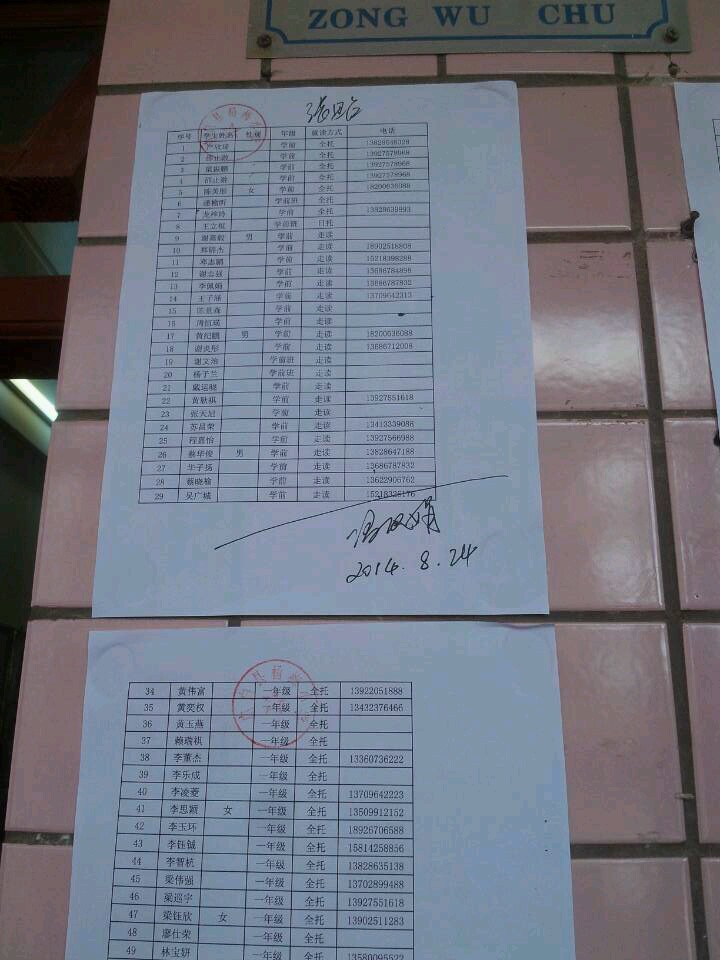 ZONG WU CHU
序号 学生姓名 性别 年级 就读方式 电话
1 学前 全托
2 学前 全托 13927578968
3 学前 全托 13927578968
4 学前 全托 13927578968
5 陈美彤 女 学前 全托 18200636088
6 学前班 全托
7 学前 全托 13828639993
8 王立权 学前班 日托
9 谢嘉毅 男 学前 走读
10 学前 走读 18902518808
11 邓志鹏 学前 走读 15218398288
12 谢志强 学前 走读 13686784898
13 李佩娟 学前 走读 13686787832
14 王子涵 学前 走读 13709642313
15 学前 走读
16 学前 走读
17 黄纪鹏 男 学前 走读 18200636088
18 谢炎彤 学前 走读 13686712008
19 谢文浩 学前班 走读
20 杨子兰 学前班 走读
21 戴运晓 学前 走读
22 黄耿祺 学前 走读 13927551618
23 张天启 学前 走读
24 苏昌荣 学前 走读 13413339088
25 程嘉怡 学前 走读 13927566988
26 蔡华俊 男 学前 走读 13828647188
27 华子扬 学前 走读 13686787832
28 蔡晓榆 学前 走读 13622906762
29 吴广城 学前 走读 15218326176
2014.8.24
34 黄伟富 一年级 全托 13922051888
35 黄奕权 一年级 全托 13432376466
36 黄玉燕 一年级 全托
37 赖瑞祺 一年级 全托
38 李董杰 一年级 全托 13360736222
39 李乐成 一年级 全托
40 李凌菱 一年级 全托 13709642223
41 李思颖 女 一年级 全托 13509912152
42 李玉环 一年级 全托 18926706588
43 李钰铖 一年级 全托 15814258856
44 李智杭 一年级 全托 13828635138
45 梁伟强 一年级 全托 13702899488
46 梁巡宇 一年级 全托 13927551618
47 梁钰欣 女 一年级 全托 13902511283
48 廖仕荣 一年级 全托
49 林宝妍 一年级 全托 13580095522